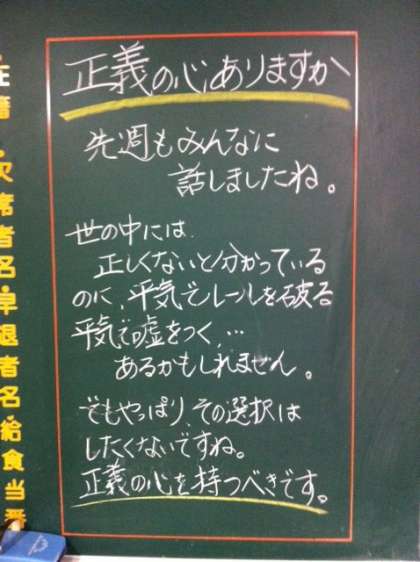 正義の心ありますか
先週もみんなに
話しましたね。
世の中には
正しくないと分かっている
のに、平気でルールを破る
平気で嘘をつく、…
あるかもしれません。
でもやっぱり、その選択は
したくないですね。
正義の心を持つべきです。
在籍・欠席者名・早退者名・給食当番